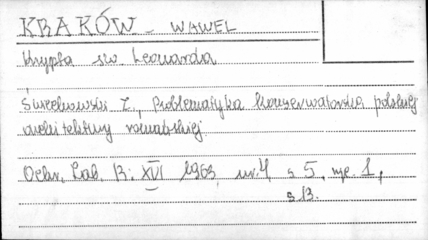 KRAKÓW - WAWEL
Krypta św. Leonarda
Świechowski Z., Problematyka konserwatorska polskiej
architektury romańskiej
Ochr. Zab. R: XVI 1963, nr. 4 s 5, ryc. 1,
s 13.